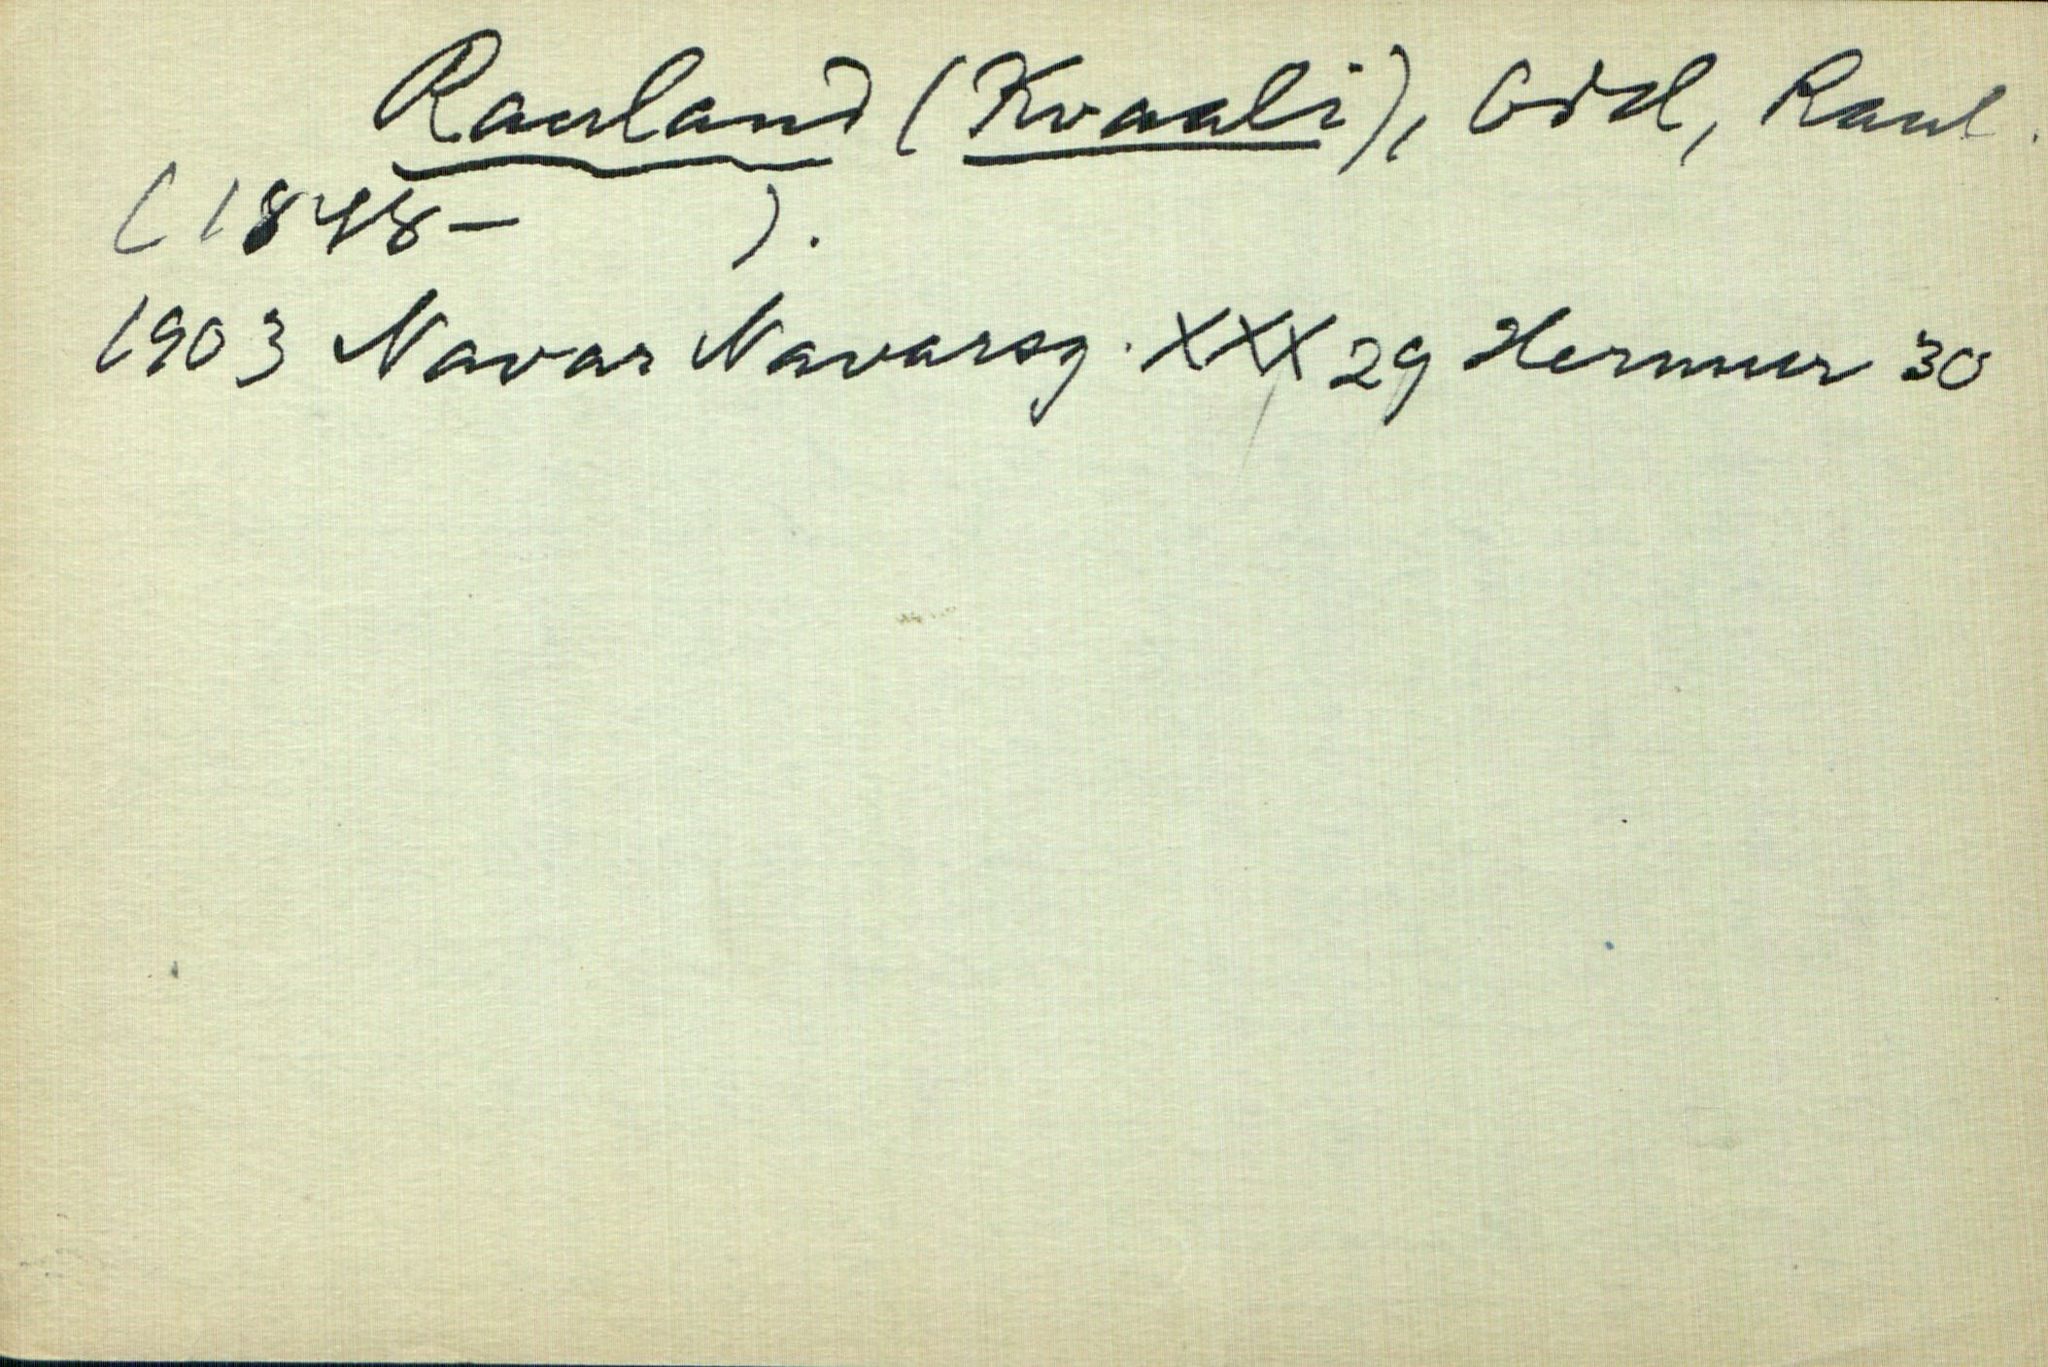 Rauland (Kvaali), Odd, Raul.
(1848- ).
1903 Navar Navarsg. XXX 29 Hermur 30